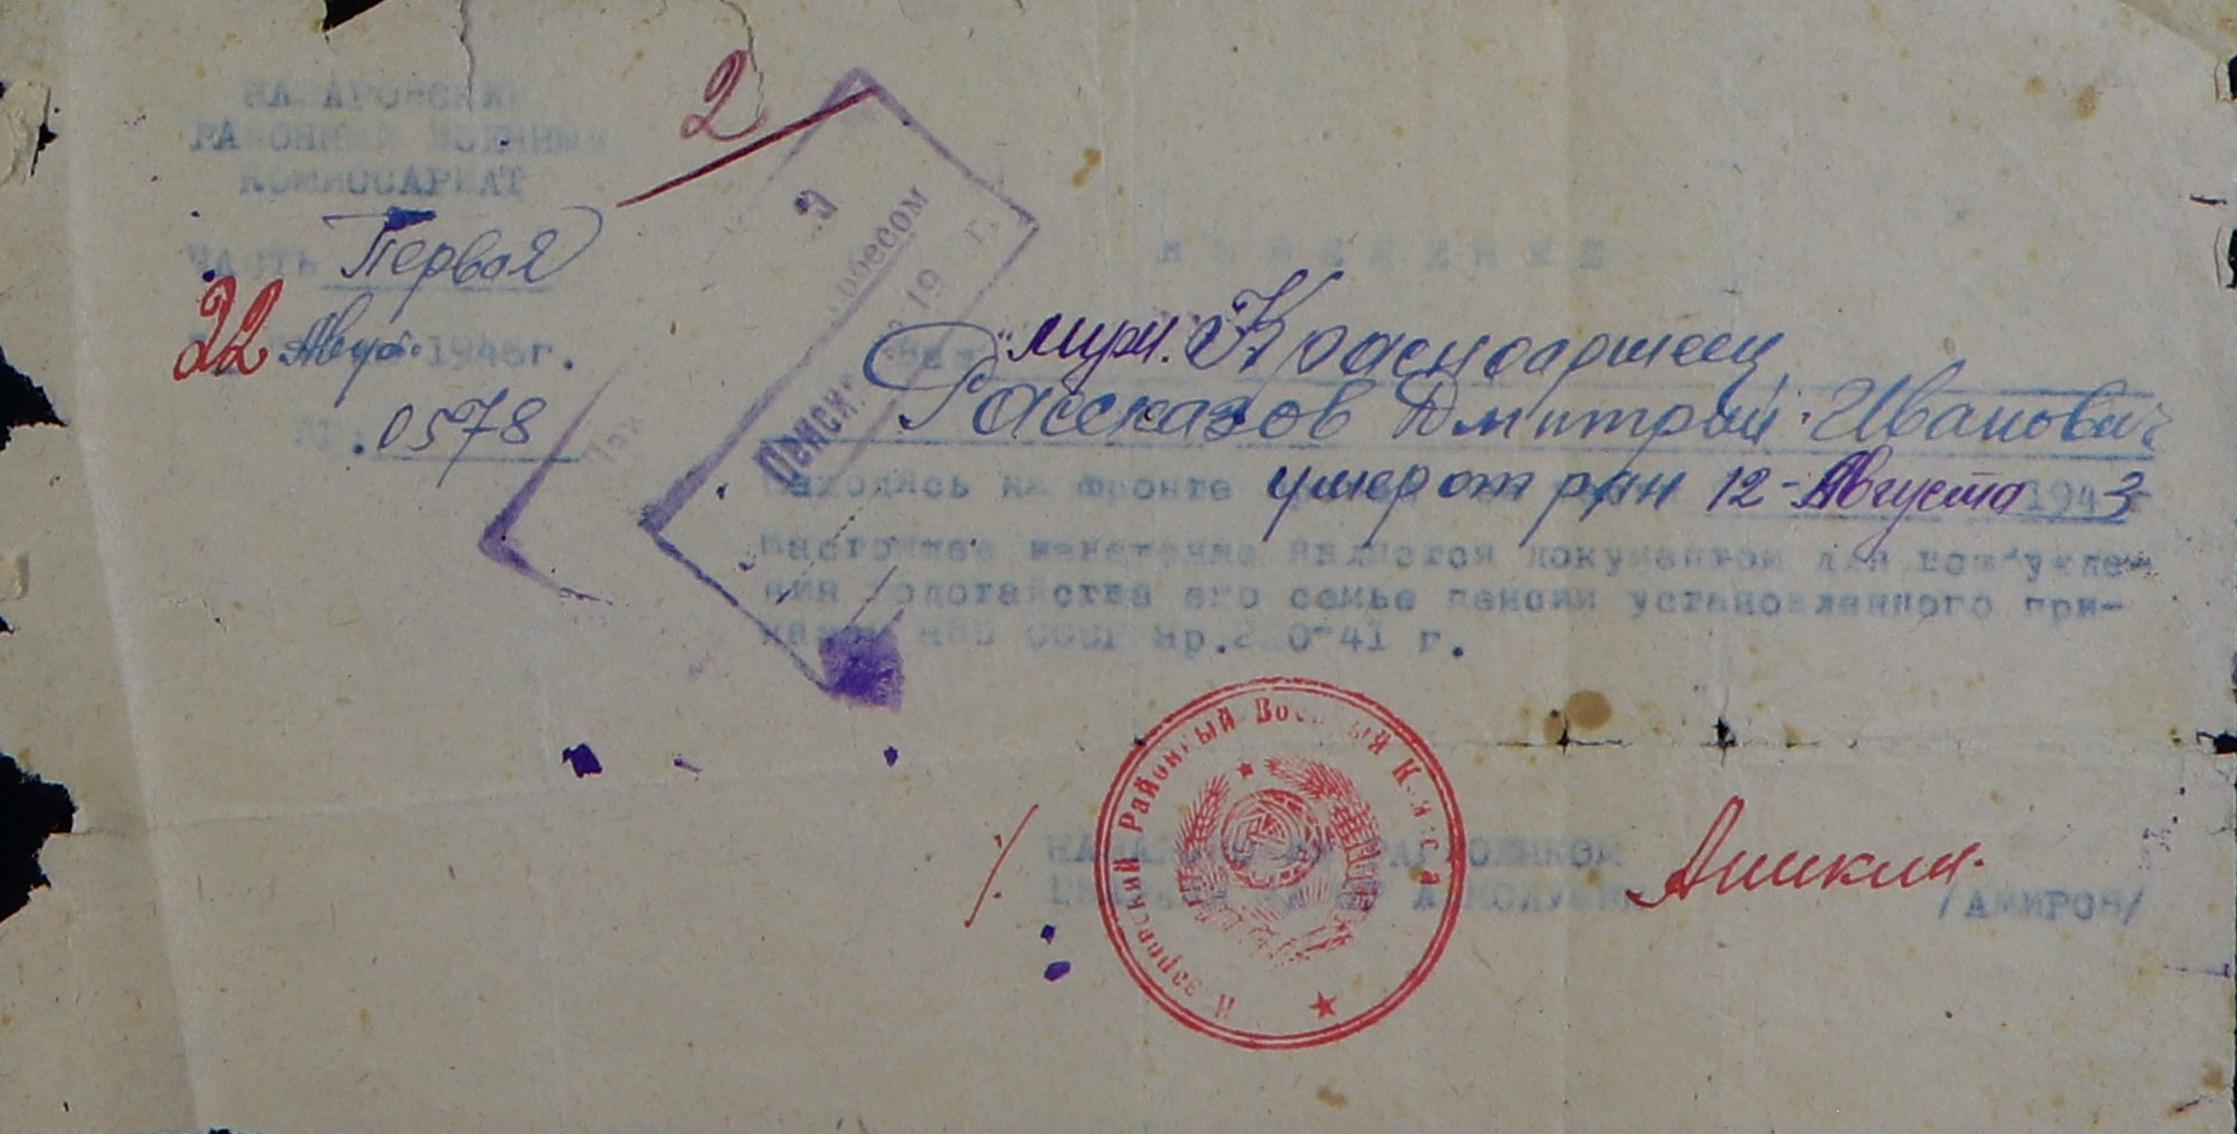 НАЗАРОВСКИЙ
РАЙОННЫЙ ВОЕННЫЙ
КОМИССАРИАТ
ЧАСТЬ Первая
22 Авгус. 1946г.
0578
2
обесом
19 г.
ИЗВЕЩЕНИЕ
Ваш муж. Красноармеец
Рассказов Дмитрий Иванович
находясь на фронте умер от ран 12-Августа 1943
Настоящее извещение является документом для возбужде-
ния ходотайства его семье пенсии установленного при-
НКО СССР Нр. 0-41 г.
Назаровский Районный Военный
Аникин
/АМИРОВ/